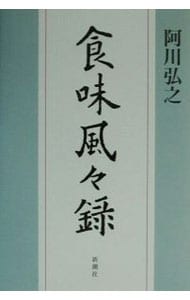 阿川弘之
食味風々録
新潮社